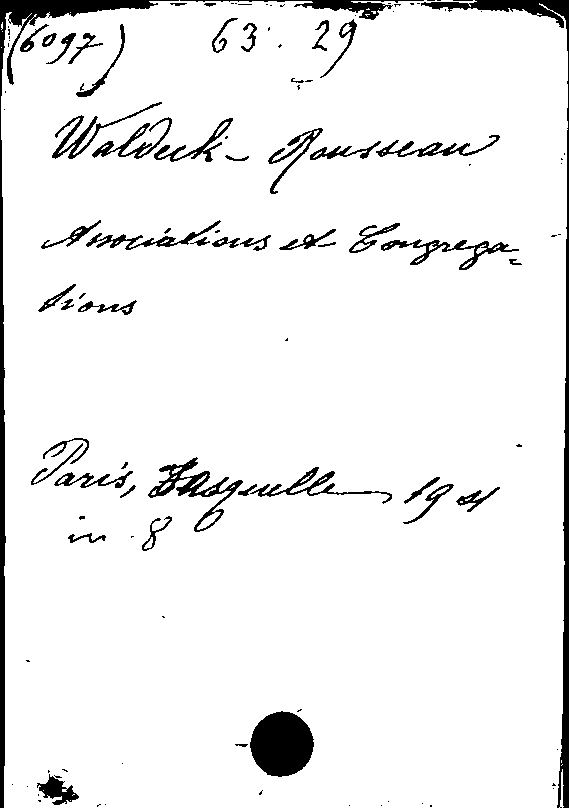 (6097) 63. 29
Waldeck-Rousseau
Associations et Congrega-
tions
Paris, Fasquelle, 1901
in 8